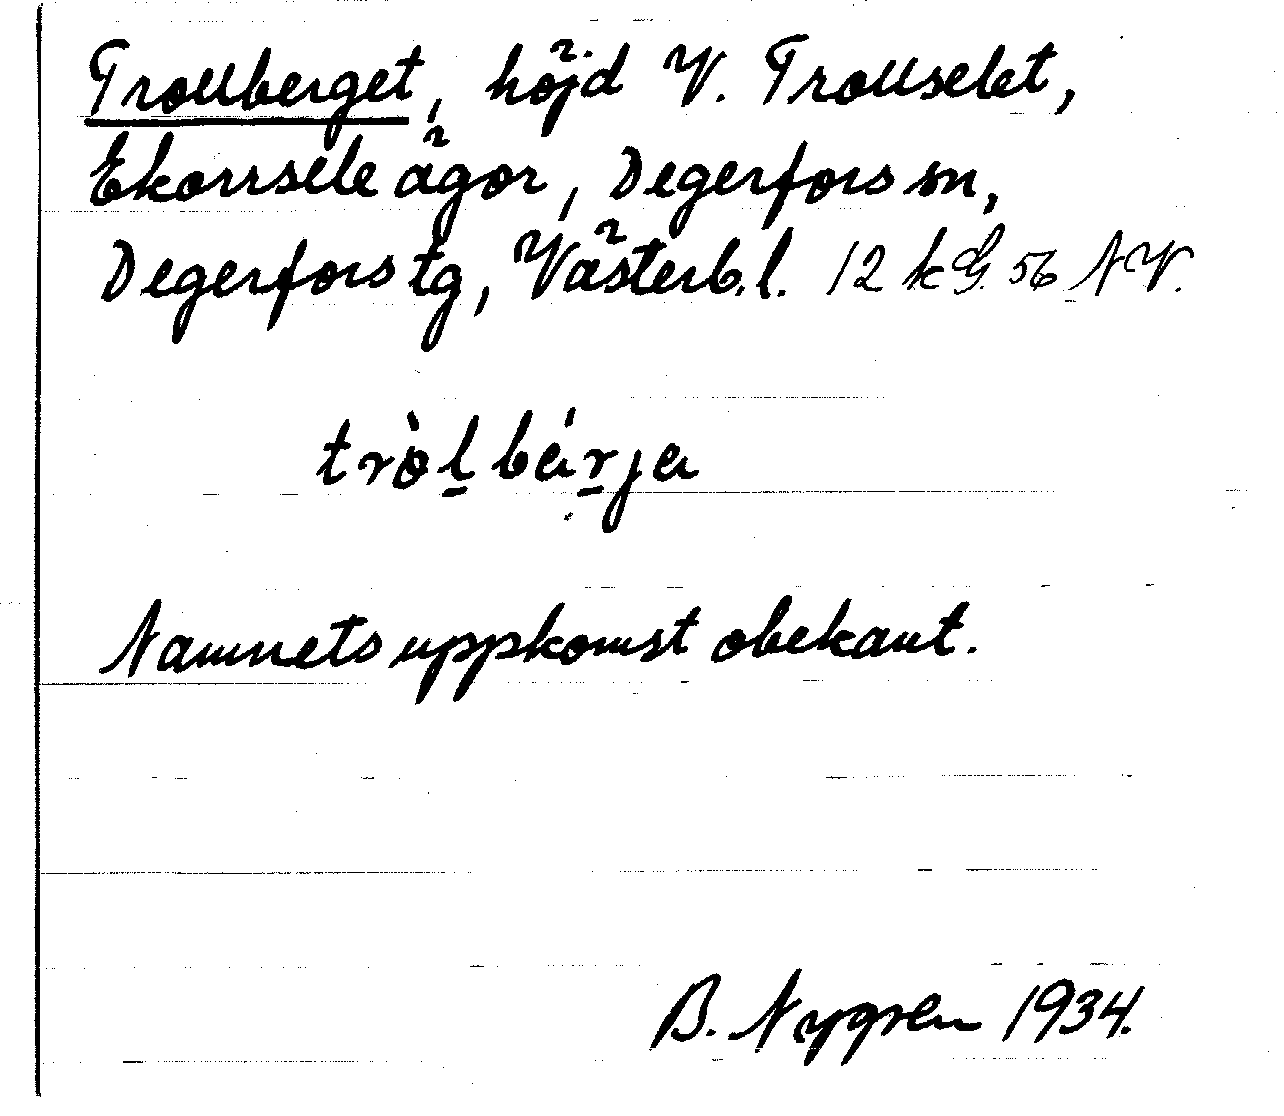 Trollberget, höjd V. Trollselet,
Ekorrsele ägor, Degerfors sn,
Degerfors tg, Västerb.l. 12 k G. 56 NV.
tròl̠bárja
Namnets uppkomst obekant.
B. Nygren 1934.